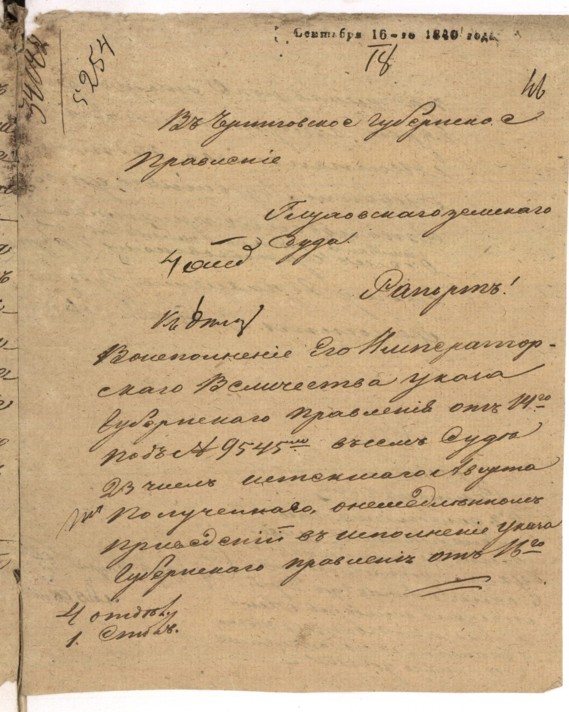 Сентября 16-го 1840 года
34042
5254
18
46
Въ Черниговское Губернское
Правленіе
Глуховскаго земскаго
Суда.
4 отд
Рапортъ!
Къ делу
Воисполненіе Его Император-
скаго Величества указа
Губернскаго правленія отъ 14го
подъ № 9545мъ въ семъ Суде
23 числ истекшаго Августа
Полученнаго, о немедленномъ
приведеніи въ исполненіе указа
Губернскаго правленія отъ 16го
4 отдел.
1. Столъ.